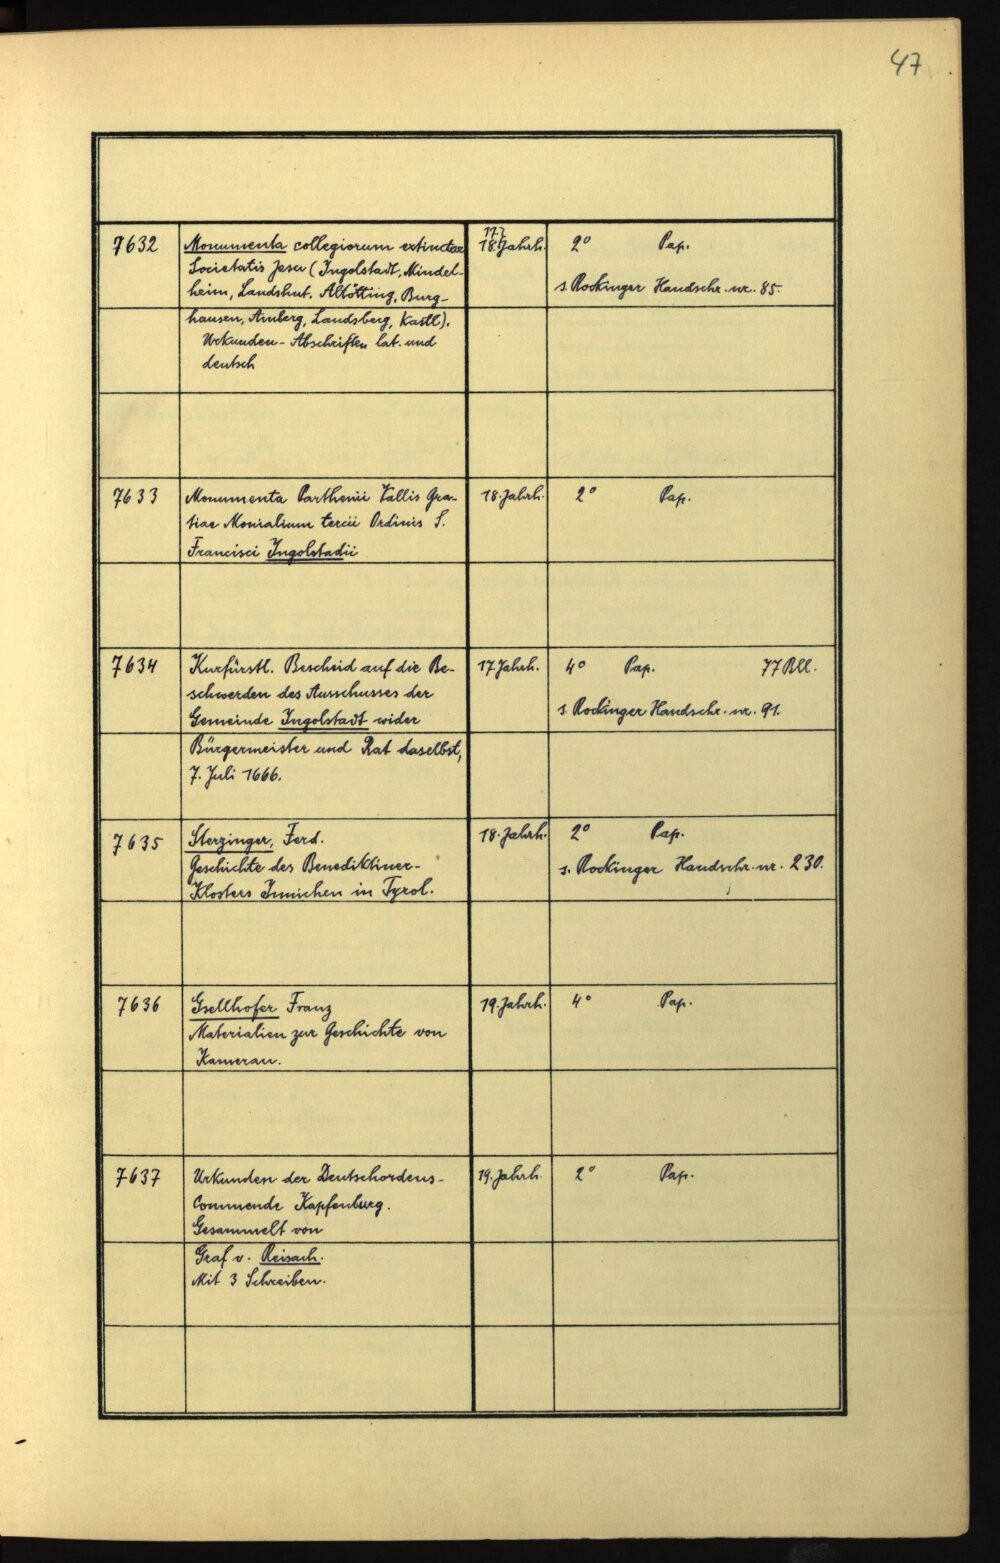 47
7632 Monumenta collegiorum extinctae 18. Jahrh. 2° Pap.
Societatis Jesu (Ingolstadt, Mindel-
heim, Landshut, Altötting, Burg- s. Rockinger Handschr. nr. 85.
hausen, Amberg, Landsberg, Kastl).
Urkunden-Abschriften lat. und
deutsch
7633 Monumenta Parthenii Vallis Gra- 18. Jahrh. 2° Pap.
tiae Monialium tercii Ordinis S.
Francisci Ingolstadii
7634 Kurfürstl. Bescheid auf die Be- 17. Jahrh. 4° Pap. 77 Bll.
schwerden des Ausschusses der
Gemeinde Ingolstadt wider s. Rockinger Handschr. nr. 91.
Bürgermeister und Rat daselbst,
7. Juli 1666.
7635 Sterzinger, Ferd. 18. Jahrh. 2° Pap.
Geschichte des Benediktiner- s. Rockinger Handschr. nr. 230.
Klosters Innichen in Tyrol.
7636 Gsellhofer Franz 19. Jahrh. 4° Pap.
Materialien zur Geschichte von
Kamerau.
7637 Urkunden der Deutschordens- 19. Jahrh. 2° Pap.
Commende Kapfenburg.
Gesammelt von
Graf v. Reisach.
Mit 3 Schreiben.